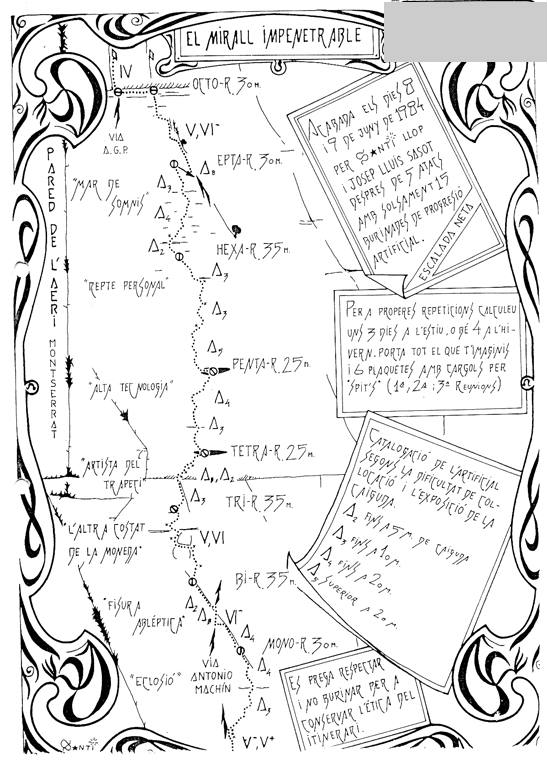 EL MIRALL IMPENETRABLE
IV
OCTO-R.30m.
VIA
A.G.P.
V,VI-
EPTA-R.30m.
A3
"MAR DE
SOMNIS"
A4
A2
HEXA-R.35m.
A3
"REPTE PERSONAL"
A3
PENTA-R.25m.
A4
"ALTA TECNOLOGIA"
A3
TETRA-R.25m.
"ARTISTA DEL
TRAPEZI"
A3, A2
A3
TRI-R.35m.
"L'ALTRA COSTAT
DE LA MONEDA"
V,VI
BI-R.35m.
A2
A3
"FISURA
ABLÈPTICA"
VI-
A4
MONO-R.30m.
VIA
ANTONIO
MACHÍN
A4
"ECLOSIÓ"
A3
V-,V+
PARED DE L'AERI MONTSERRAT
ACABADA ELS DIES 8
I 9 DE JUNY DE 1984
PER SANTI LLOP
I JOSEP LLUIS SASOT
DESPRES DE 5 ATACS
AMB SOLSAMENT 15
BURINADES DE PROGRESIÓ
ARTIFICIAL.
ESCALADA NETA
PER A PROPERES REPETICIONS CALCULEU
UNS 3 DIES A L'ESTIU, O BÉ 4 A L'HI-
VERN. PORTA TOT EL QUE T'IMAGINIS
I 6 PLAQUETES AMB CARGOLS PER
"SPITS" (1a, 2a i 3a REUNIONS)
CATALOGACIÓ DE L'ARTIFICIAL
SEGONS LA DIFICULTAT DE COL-
LOCACIÓ I L'EXPOSICIÓ DE LA
CAIGUDA.
A2 FINS A 5m. DE CAIGUDA
A3 FINS A 10m.
A4 FINS A 20m.
A5 SUPERIOR A 20m.
ES PREGA RESPECTAR
I NO BURINAR PER A
CONSERVAR L'ÈTICA DEL
ITINERARI.
SANTI